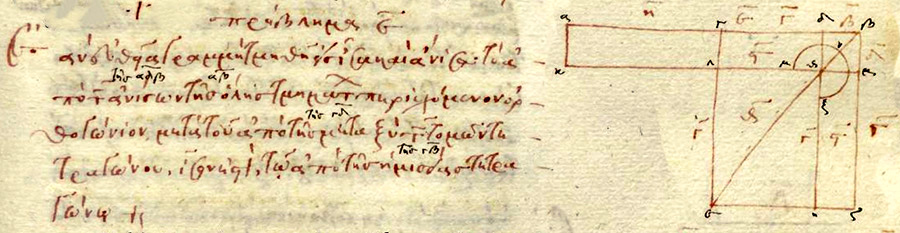 πρόβλημα ε
ἐὰν εὐθεῖα γραμμὴ τμηθῇ εἰς ἴσα καὶ ἄνισα τὸ ὑ
τῆς αδβ αβ
πὸ τῶν ἀνίσων τῆς ὅλης τμημάτων περιεχόμενον ὀρ
τῆς γδ
θογώνιον, μετὰ τοῦ ἀπὸ τῆς μεταξὺ τῶν τομῶν τε
τῆς γβ
τραγώνου, ἴσον ἐστὶ, τῷ ἀπὸ τῆς ἡμισείας τετρα
γώνῳ
α η γ δ β
κ λ μ θ
ε η ζ